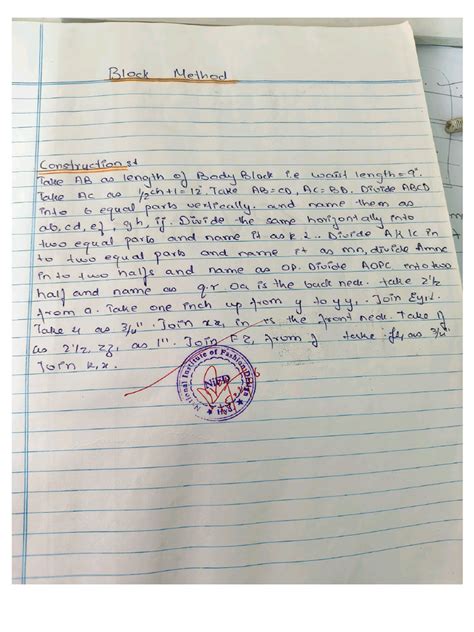 Block Method
Construction :-
Take AB as length of Body Block i.e waist length = 9".
Take AC as 1/2 ch+1=12". Take AB=CD, AC=BD. Divide ABCD
into 6 equal parts vertically. and name them as
ab, cd, ef, gh, ij. Divide the same horizontally into
two equal parts and name it as k l. Divide AKIC in
to two equal parts and name it as mn, divide Amnc
in to two halfs and name as OP. Divide AOPC into two
half and name as q.r oa is the back neck. take 2 1/2
from a. Take one inch up from y to yy, Join
Take as 3/4". Join in is the front neck. Take
as 2 1/2, as 1". Join from take as 3/4"
Join k, x.
National Institute of Fashion Design
NIFD